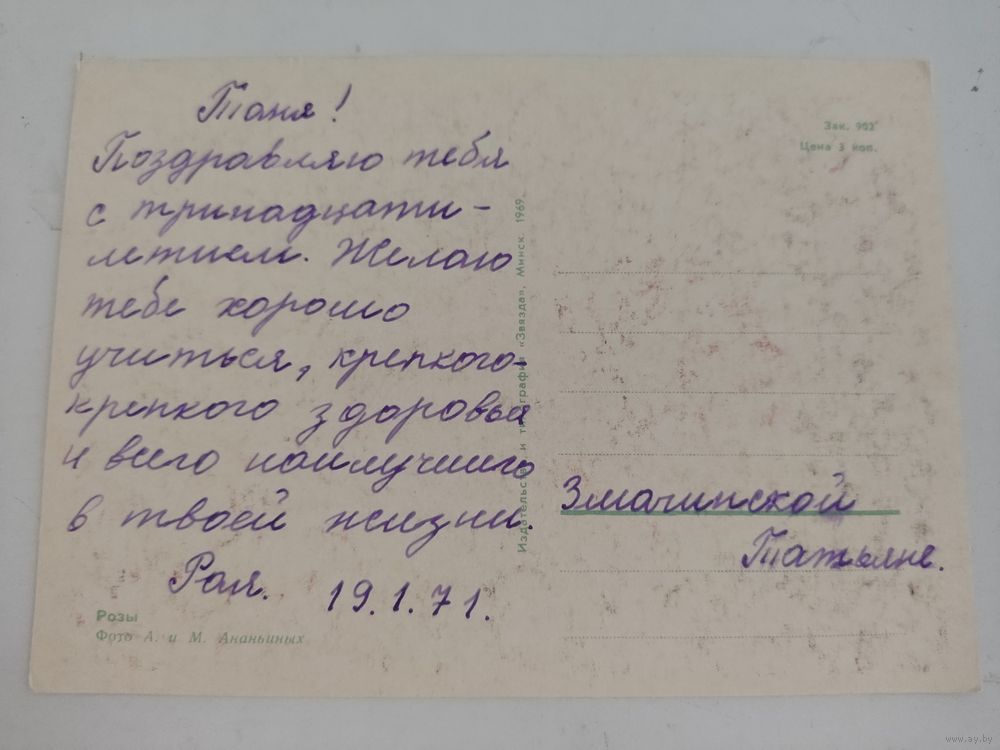 Таня!
Поздравляю тебя
с тринадцати-
летием. Желаю
тебе хорошо
учиться, крепкого-
крепкого здоровья
и всего наилучшего
в твоей жизни.
Рая. 19.1.71.
Розы
Фото А. и М. Ананьиных
Издательство и типография «Звязда», Минск. 1969.
Зак. 902
Цена 3 коп.
Змачинской
Татьяне.
www.ay.by